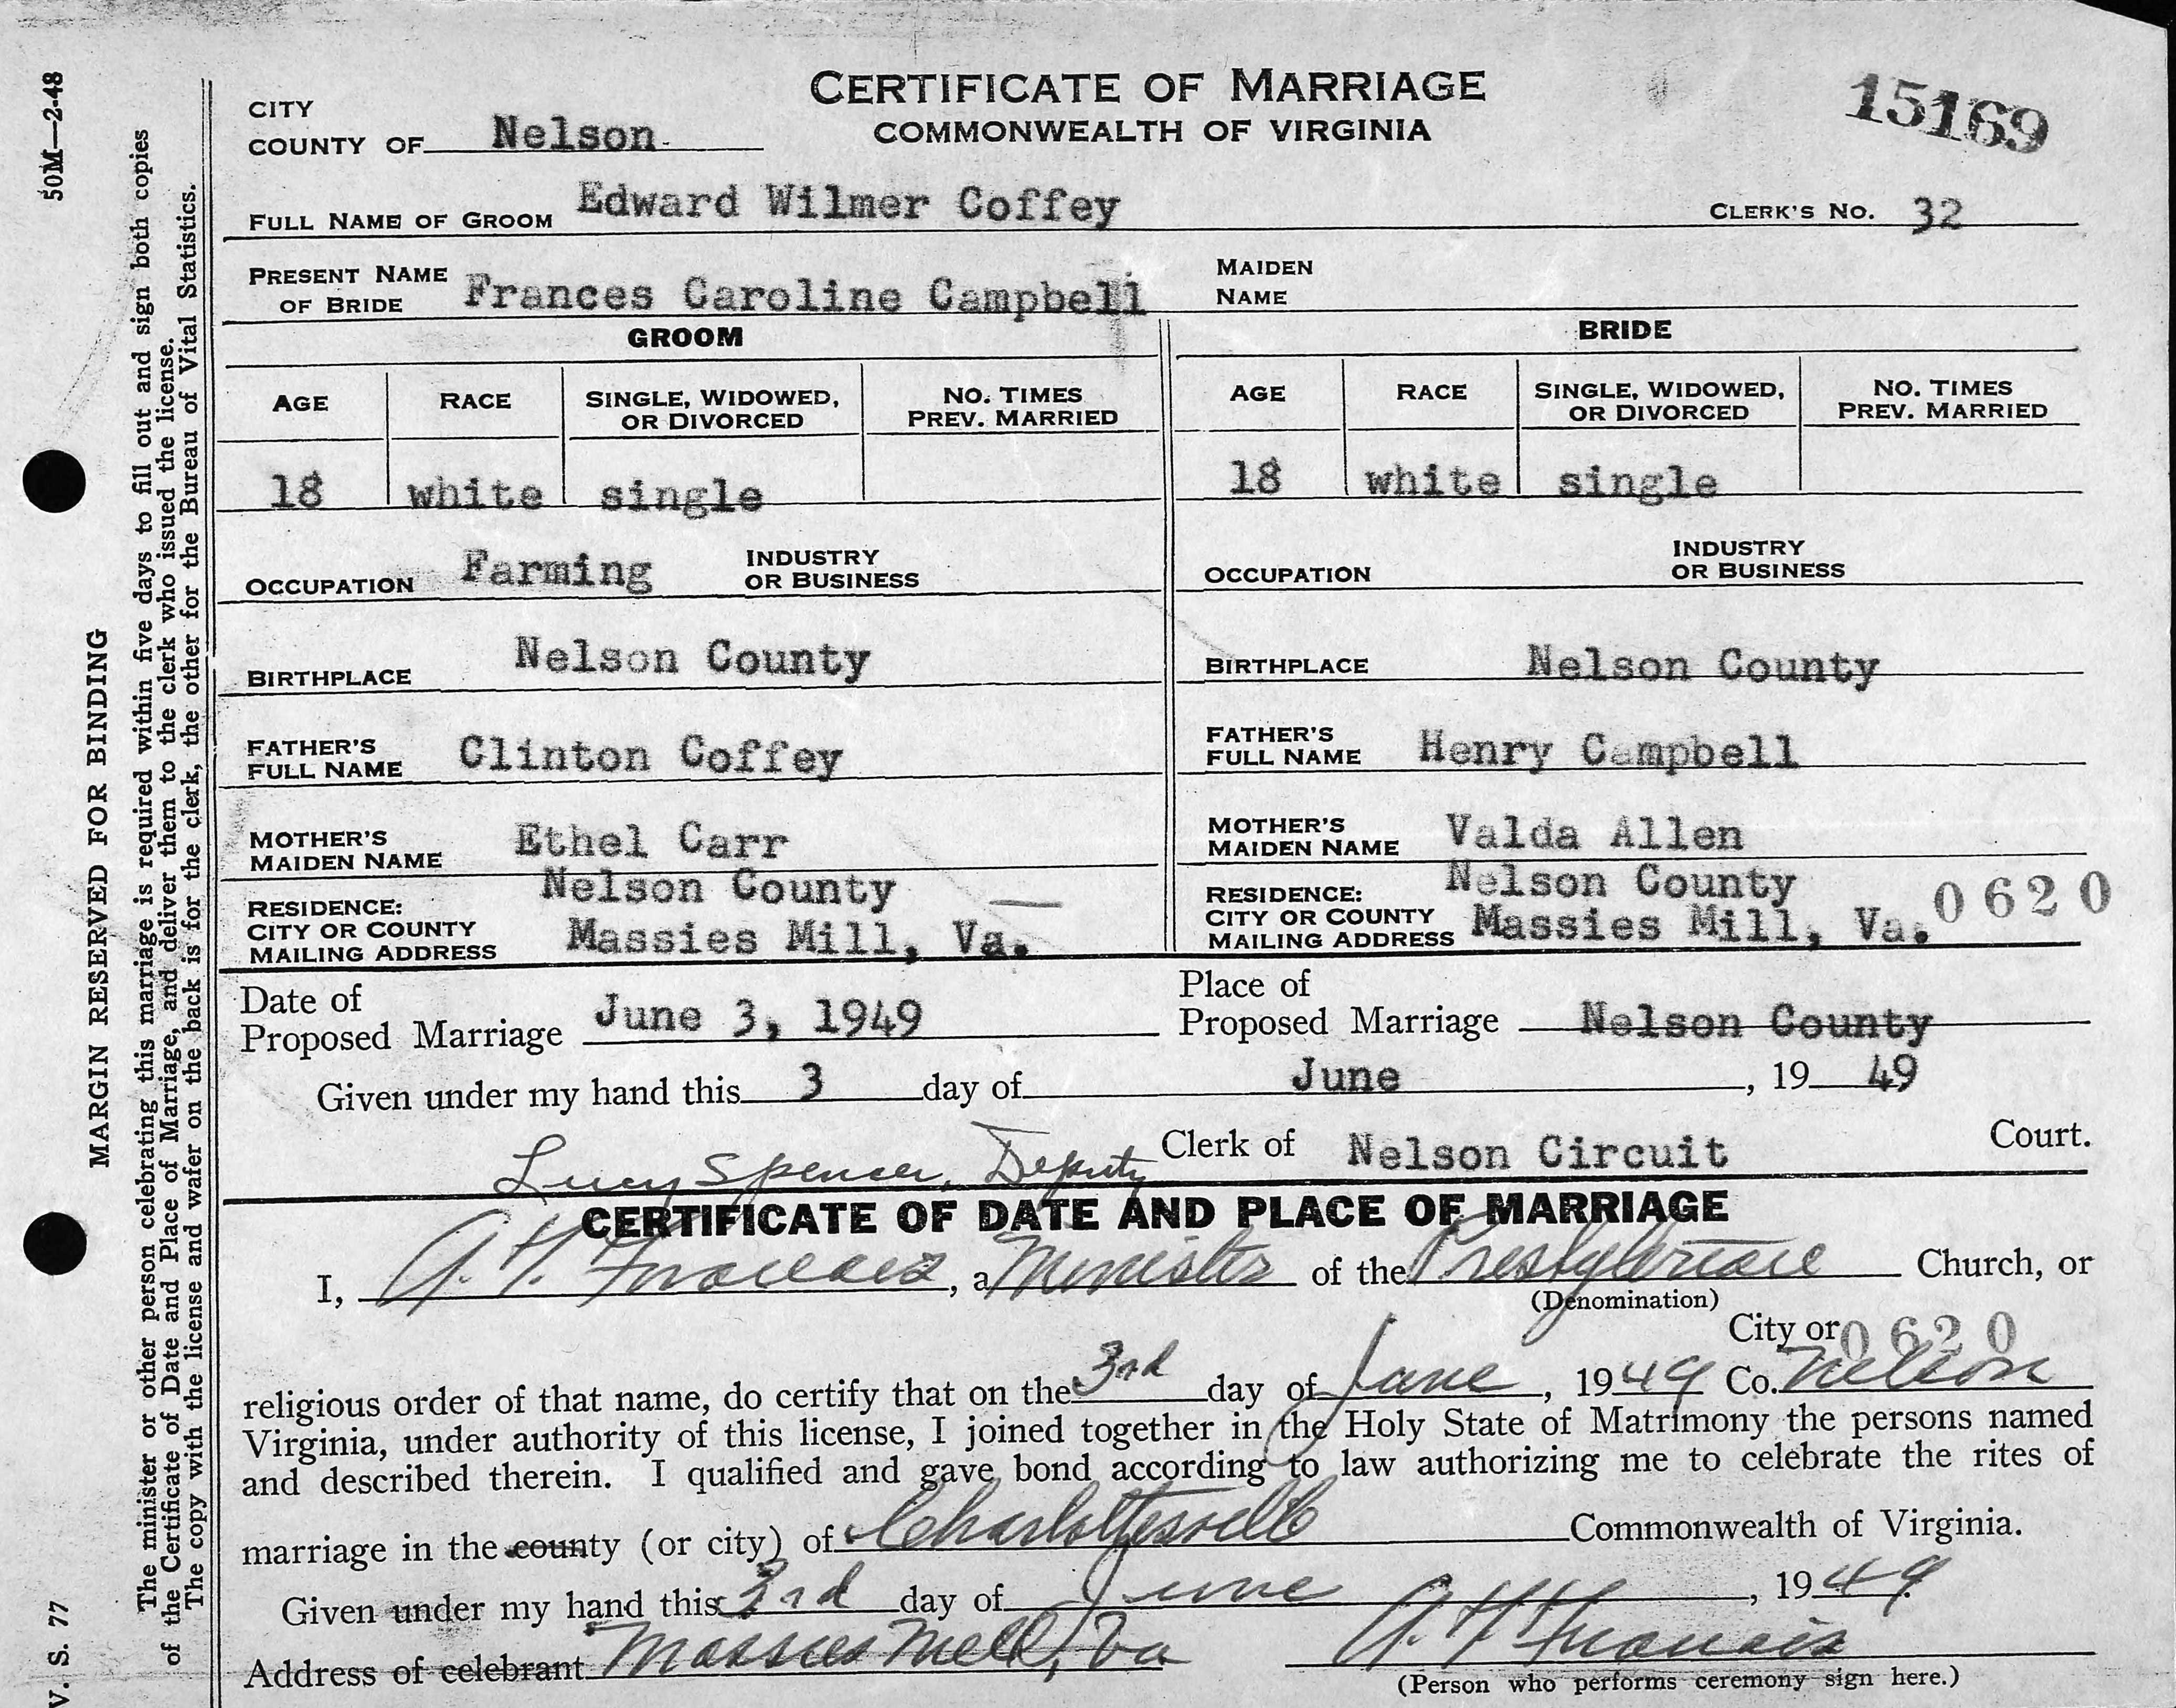 CERTIFICATE OF MARRIAGE
COMMONWEALTH OF VIRGINIA
15169
CITY
COUNTY OF Nelson
FULL NAME OF GROOM Edward Wilmer Coffey CLERK'S No. 32
PRESENT NAME OF BRIDE Frances Caroline Campbell MAIDEN NAME
GROOM BRIDE
AGE RACE SINGLE, WIDOWED, OR DIVORCED NO. TIMES PREV. MARRIED AGE RACE SINGLE, WIDOWED, OR DIVORCED NO. TIMES PREV. MARRIED
18 white single 18 white single
OCCUPATION Farming INDUSTRY OR BUSINESS OCCUPATION INDUSTRY OR BUSINESS
BIRTHPLACE Nelson County BIRTHPLACE Nelson County
FATHER'S FULL NAME Clinton Coffey FATHER'S FULL NAME Henry Campbell
MOTHER'S MAIDEN NAME Ethel Carr MOTHER'S MAIDEN NAME Valda Allen
RESIDENCE: CITY OR COUNTY Nelson County RESIDENCE: CITY OR COUNTY Nelson County 0620
MAILING ADDRESS Massies Mill, Va. MAILING ADDRESS Massies Mill, Va.
Date of Proposed Marriage June 3, 1949 Place of Proposed Marriage Nelson County
Given under my hand this 3 day of June, 1949
Lucy Spencer, Deputy Clerk of Nelson Circuit Court.
CERTIFICATE OF DATE AND PLACE OF MARRIAGE
I, A. H. Francis, a Minister of the Presbyterian Church, or
(Denomination)
City or 0620
religious order of that name, do certify that on the 3rd day of June, 1949 Co. Nelson
Virginia, under authority of this license, I joined together in the Holy State of Matrimony the persons named
and described therein. I qualified and gave bond according to law authorizing me to celebrate the rites of
marriage in the county (or city) of Charlottesville Commonwealth of Virginia.
Given under my hand this 3rd day of June, 1949
Address of celebrant Massies Mill, Va A. H. Francis
(Person who performs ceremony sign here.)
50M—2-48
MARGIN RESERVED FOR BINDING
V. S. 77
The minister or other person celebrating this marriage is required within five days to fill out and sign both copies
of the Certificate of Date and Place of Marriage, and deliver them to the clerk who issued the license.
The copy with the license and wafer on the back is for the clerk, the other for the Bureau of Vital Statistics.